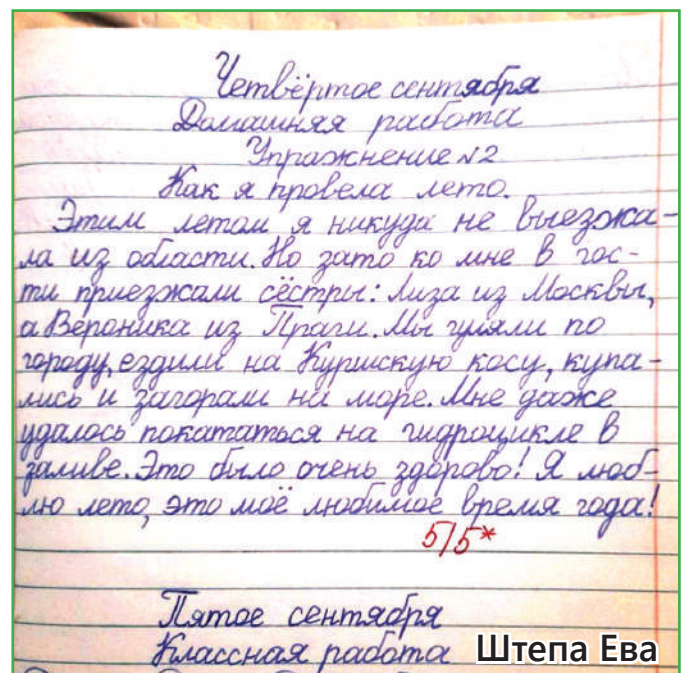 Четвёртое сентября
Домашняя работа
Упражнение №2
Как я провела лето.
Этим летом я никуда не выезжа-
ла из области. Но зато ко мне в гос-
ти приезжали сёстры: Лиза из Москвы,
а Вероника из Праги. Мы гуляли по
городу, ездили на Куршскую косу, купа-
лись и загорали на море. Мне даже
удалось покататься на гидроцикле в
заливе. Это было очень здорово! Я люб-
лю лето, это моё любимое время года!
5/5*
Пятое сентября
Классная работа
Штепа Ева